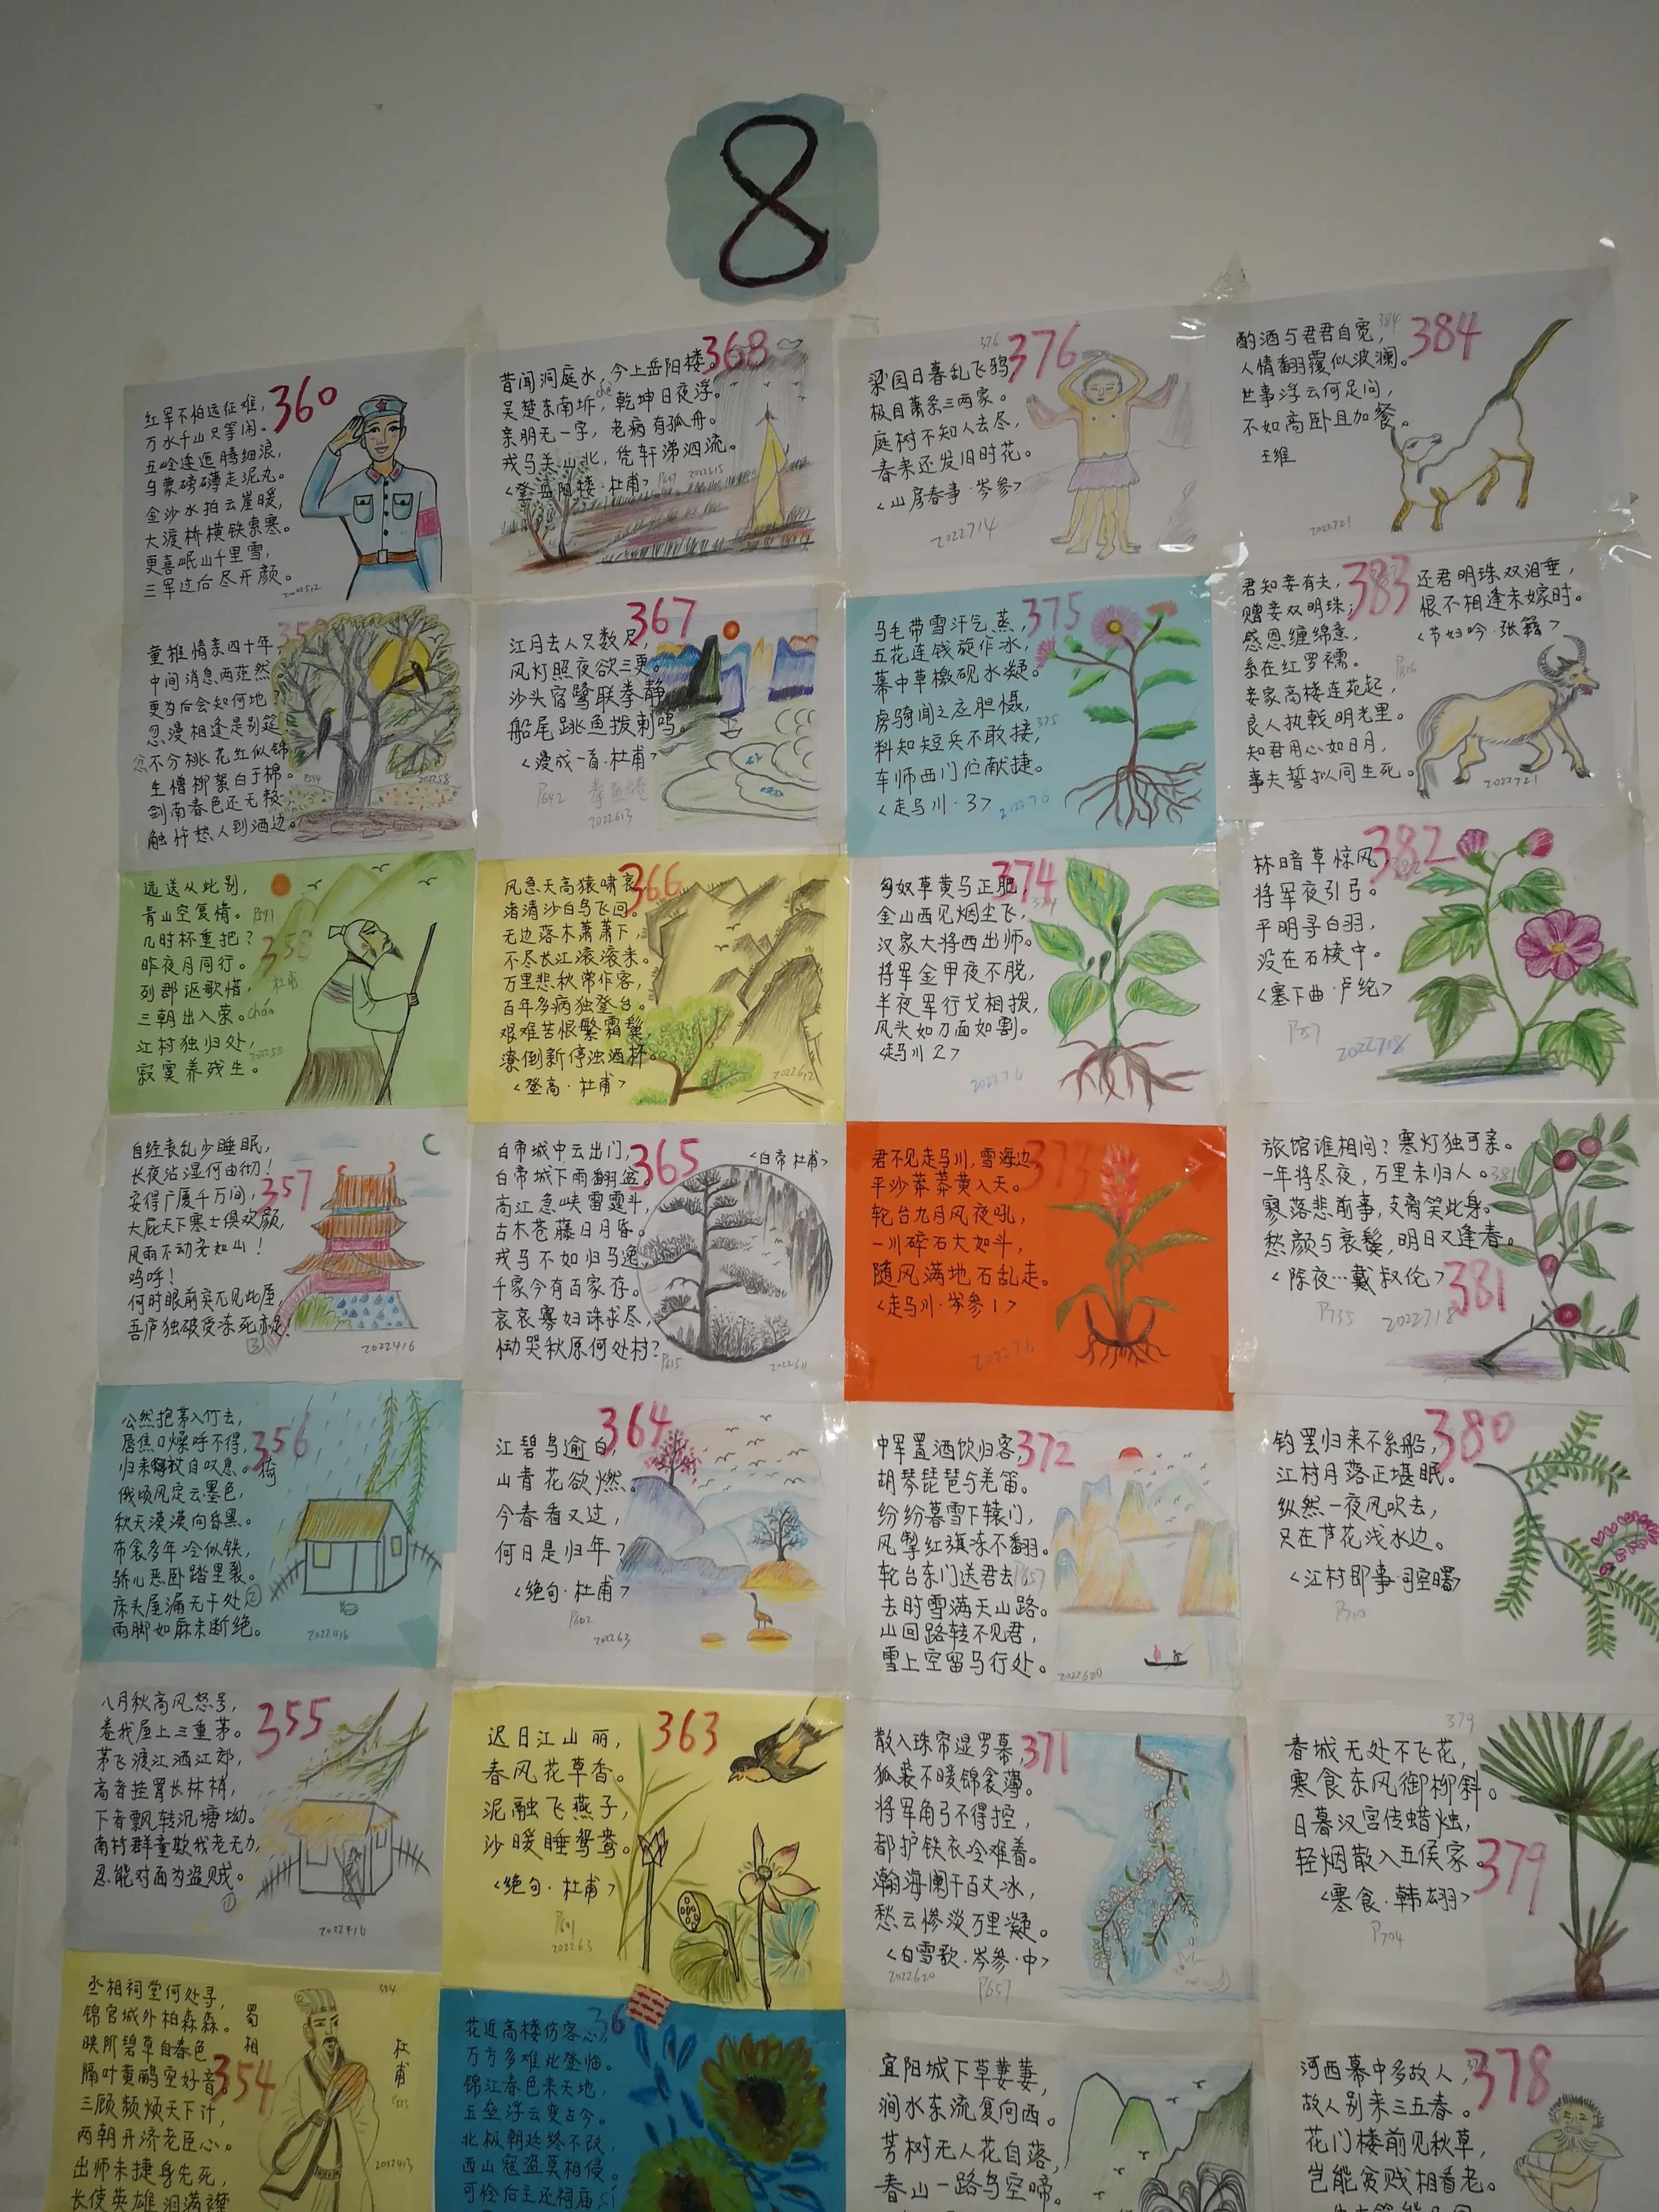 8
360
红军不怕远征难，
万水千山只等闲。
五岭逶迤腾细浪，
乌蒙磅礴走泥丸。
金沙水拍云崖暖，
大渡桥横铁索寒。
更喜岷山千里雪，
三军过后尽开颜。
2022512
359
童稚情亲四十年，
中间消息两茫然。
更为后会知何地？
忽漫相逢是别筵。
不分桃花红似锦，
生憎柳絮白于棉。
剑南春色还无赖，
触忤愁人到酒边。
202258
358
远送从此别，
青山空复情。
几时杯重把？
昨夜月同行。
列郡讴歌惜，
三朝出入荣。
江村独归处，
寂寞养残生。
杜甫
P591
357
自经丧乱少睡眠，
长夜沾湿何由彻！
安得广厦千万间，
大庇天下寒士俱欢颜，
风雨不动安如山！
呜呼！
何时眼前突兀见此屋，
吾庐独破受冻死亦足！
③
2022416
356
公然抱茅入竹去，
唇焦口燥呼不得，
归来倚杖自叹息。
俄顷风定云墨色，
秋天漠漠向昏黑。
布衾多年冷似铁，
骄儿恶卧踏里裂。
床头屋漏无干处，
雨脚如麻未断绝。
②
2022416
355
八月秋高风怒号，
卷我屋上三重茅。
茅飞渡江洒江郊，
高者挂罥长林梢，
下者飘转沉塘坳。
南村群童欺我老无力，
忍能对面为盗贼。
①
2022416
354
丞相祠堂何处寻，
锦官城外柏森森。
映阶碧草自春色
隔叶黄鹂空好音。
三顾频烦天下计，
两朝开济老臣心。
出师未捷身先死，
长使英雄泪满襟
蜀相
杜甫
2022413
368
昔闻洞庭水，今上岳阳楼。
吴楚东南坼，乾坤日夜浮。
亲朋无一字，老病有孤舟。
戎马关山北，凭轩涕泗流。
<登岳阳楼·杜甫>
2022615
367
江月去人只数尺，
风灯照夜欲三更。
沙头宿鹭联拳静，
船尾跳鱼拨剌鸣。
<漫成一首·杜甫>
P642
2022613
366
风急天高猿啸哀，
渚清沙白鸟飞回。
无边落木萧萧下，
不尽长江滚滚来。
万里悲秋常作客，
百年多病独登台。
艰难苦恨繁霜鬓，
潦倒新停浊酒杯。
<登高·杜甫>
2022612
365
<白帝杜甫>
白帝城中云出门，
白帝城下雨翻盆。
高江急峡雷霆斗，
古木苍藤日月昏。
戎马不如归马逸，
千家今有百家存。
哀哀寡妇诛求尽，
恸哭秋原何处村？
P615
2022611
364
江碧鸟逾白，
山青花欲燃。
今春看又过，
何日是归年？
<绝句·杜甫>
P602
202263
363
迟日江山丽，
春风花草香。
泥融飞燕子，
沙暖睡鸳鸯。
<绝句·杜甫>
P601
202263
36
花近高楼伤客心，
万方多难此登临。
锦江春色来天地，
玉垒浮云变古今。
北极朝廷终不改，
西山寇盗莫相侵。
可怜后主还祠庙，
376
376
梁园日暮乱飞鸦，
极目萧条三两家。
庭树不知人去尽，
春来还发旧时花。
<山房春事·岑参>
2022714
375
马毛带雪汗气蒸，
五花连钱旋作冰，
幕中草檄砚水凝。
虏骑闻之应胆慑，
料知短兵不敢接，
车师西门伫献捷。
<走马川·3>
375
202276
374
匈奴草黄马正肥，
金山西见烟尘飞，
汉家大将西出师。
将军金甲夜不脱，
半夜军行戈相拨，
风头如刀面如割。
<走马川2>
202276
373
君不见走马川，雪海边，
平沙莽莽黄入天。
轮台九月风夜吼，
一川碎石大如斗，
随风满地石乱走。
<走马川·岑参1>
202276
372
中军置酒饮归客，
胡琴琵琶与羌笛。
纷纷暮雪下辕门，
风掣红旗冻不翻。
轮台东门送君去，
去时雪满天山路。
山回路转不见君，
雪上空留马行处。
P657
2022620
371
散入珠帘湿罗幕，
狐裘不暖锦衾薄。
将军角弓不得控，
都护铁衣冷难着。
瀚海阑干百丈冰，
愁云惨淡万里凝。
<白雪歌·岑参·中>
2022620
P657
宜阳城下草萋萋，
涧水东流复向西。
芳树无人花自落，
春山一路鸟空啼。
384
384
酌酒与君君自宽，
人情翻覆似波澜。
世事浮云何足问，
不如高卧且加餐。
王维
2022721
383
君知妾有夫，
赠妾双明珠；
感恩缠绵意，
系在红罗襦。
妾家高楼连苑起，
良人执戟明光里。
知君用心如日月，
事夫誓拟同生死。
还君明珠双泪垂，
恨不相逢未嫁时。
<节妇吟·张籍>
2022721
382
林暗草惊风，
将军夜引弓。
平明寻白羽，
没在石棱中。
<塞下曲·卢纶>
2022718
旅馆谁相问？寒灯独可亲。
一年将尽夜，万里未归人。
寥落悲前事，支离笑此身。
愁颜与衰鬓，明日又逢春。
<除夜…戴叔伦>
381
381
P735
2022718
380
钓罢归来不系船，
江村月落正堪眠。
纵然一夜风吹去，
只在芦花浅水边。
<江村即事·司空曙>
P710
379
春城无处不飞花，
寒食东风御柳斜。
日暮汉宫传蜡烛，
轻烟散入五侯家。
379
<寒食·韩翃>
P704
378
河西幕中多故人，
故人别来三五春。
花门楼前见秋草，
岂能贫贱相看老。